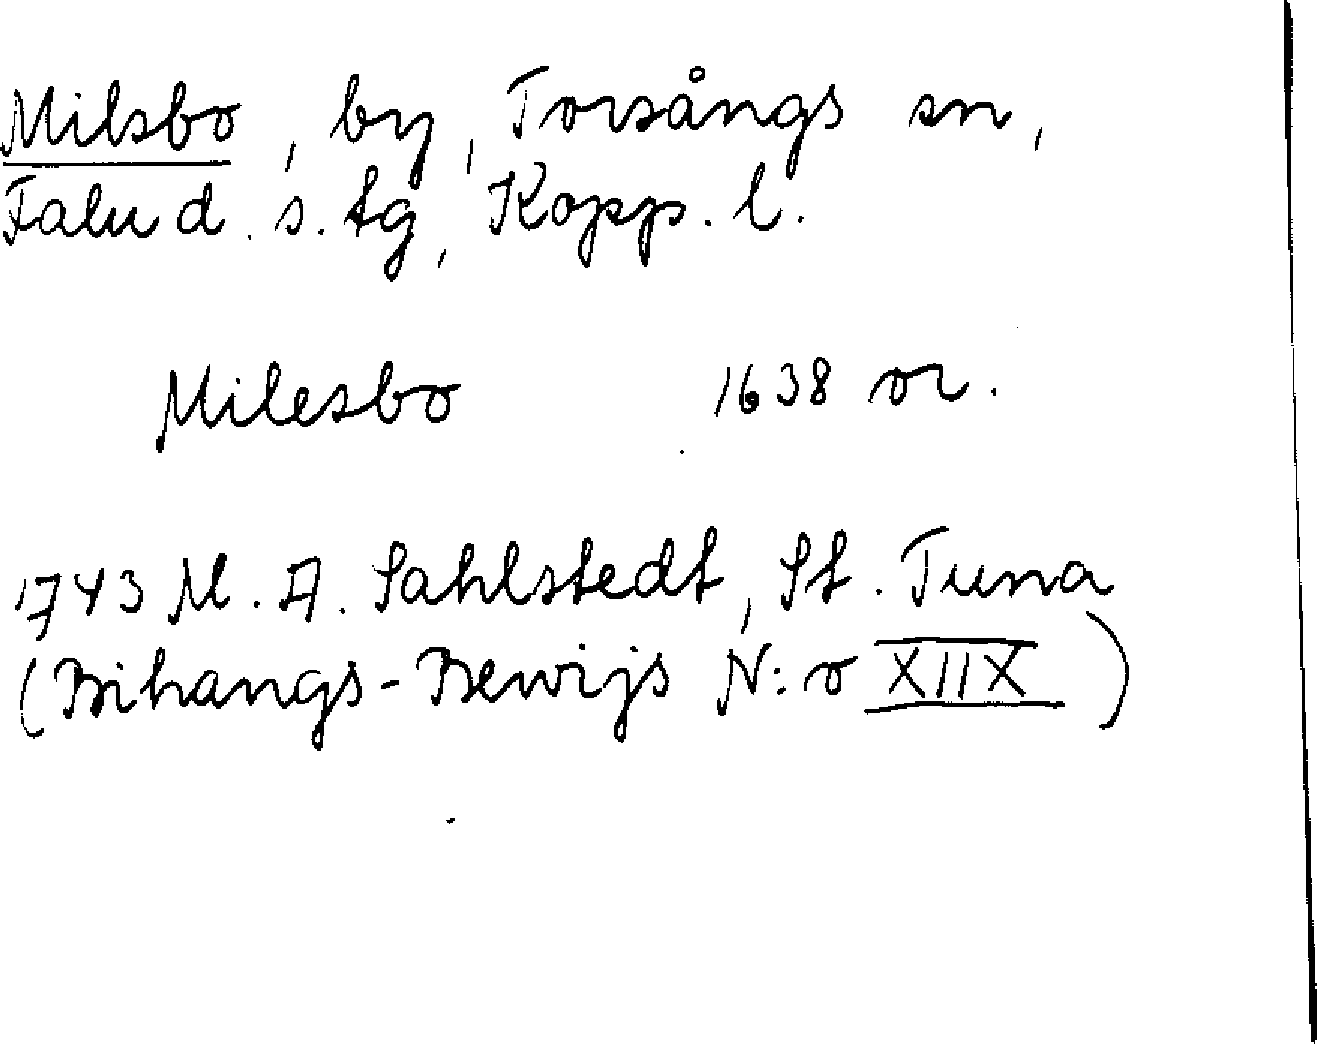 Milsbo, by, Torsångs sn,
Falu d. s. tg, Kopp. l.
Milesbo 1638 or.
1743 M. A. Sahlstedt, St. Tuna
(Bihangs-Bewijs N:o XIIX)